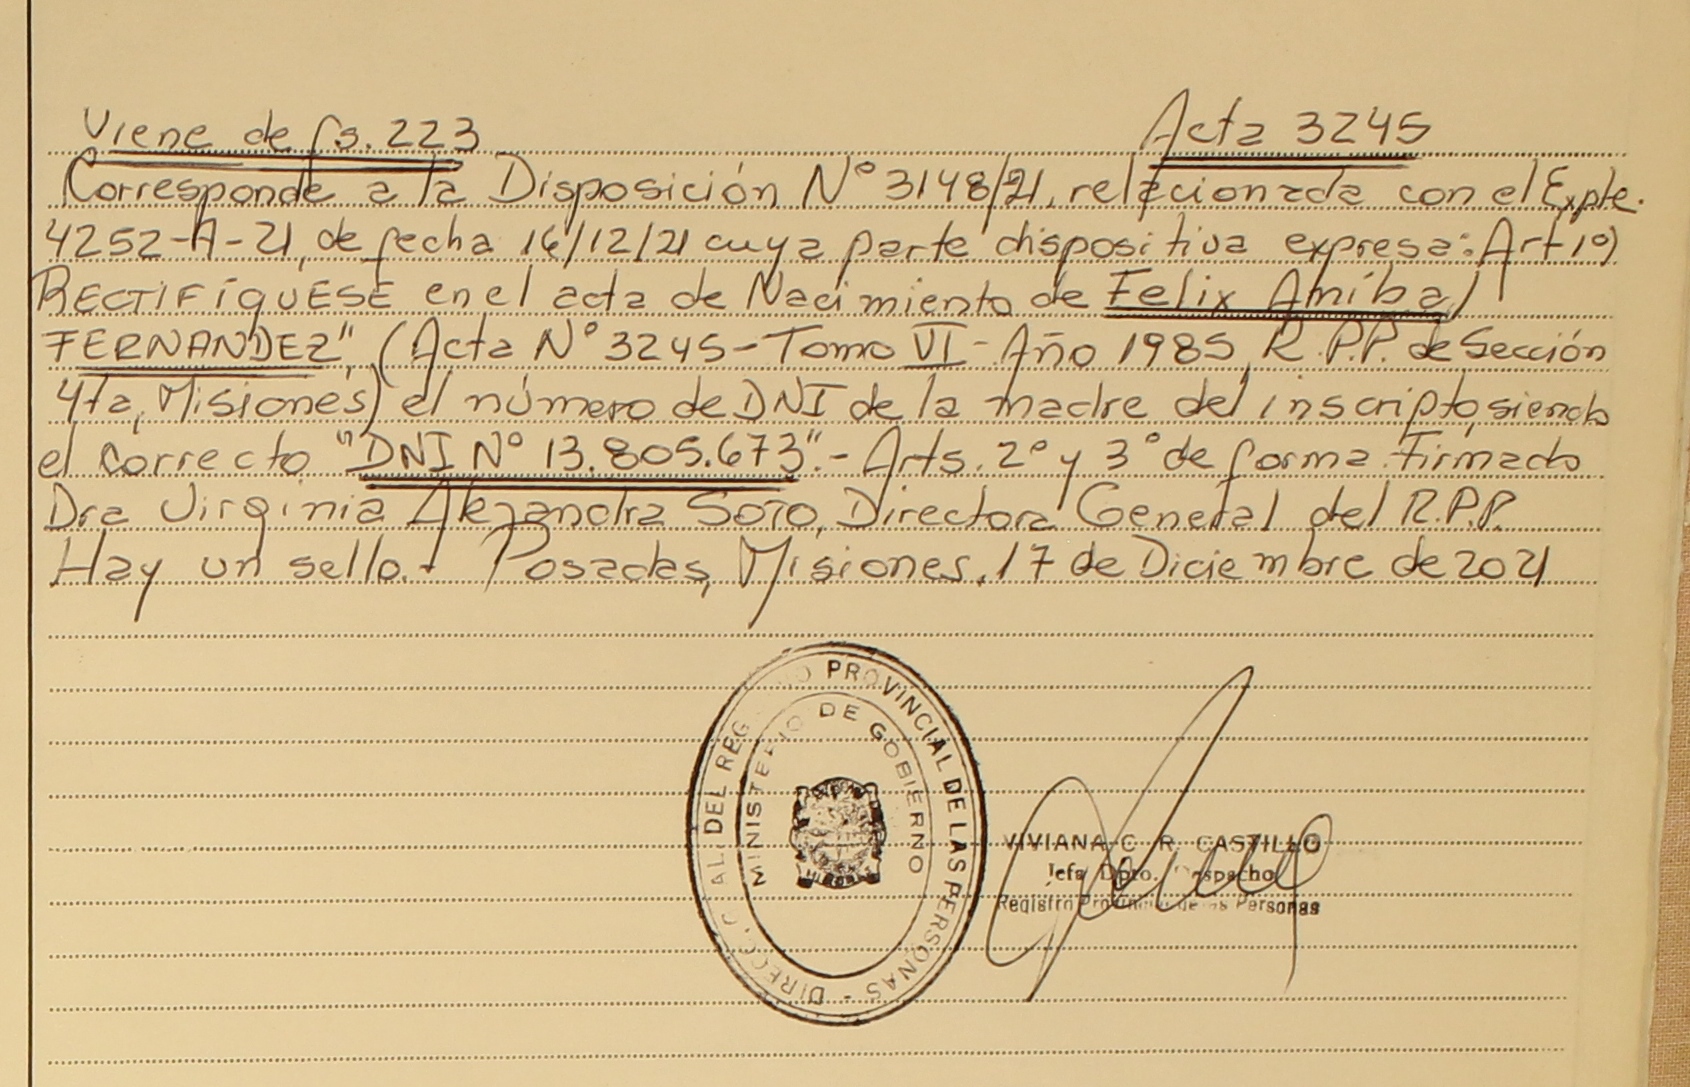 Viene de fs. 223
Acta 3245
Corresponde a la Disposición N° 3148/21, relacionada con el Expte.
4252-A-21, de fecha 16/12/21 cuya parte dispositiva expresa: Art 1°)
RECTIFÍQUESE en el acta de Nacimiento de Felix Aníbal
FERNANDEZ", (Acta N° 3245-Tomo VI-Año 1985 R.P.P. de Sección
4ta, Misiones) el número de DNI de la madre del inscripto, siendo
el correcto "DNI N° 13.805.673".- Arts. 2° y 3° de forma. Firmado
Dra Virginia Alejandra Soto, Directora General del R.P.P.
Hay un sello.- Posadas, Misiones, 17 de Diciembre de 2021
DIRECC. GRAL. DEL REGISTRO PROVINCIAL DE LAS PERSONAS -
MINISTERIO DE GOBIERNO
VIVIANA C. R. CASTILLO
Jefa Dpto. Despacho
Registro Provincial de las Personas